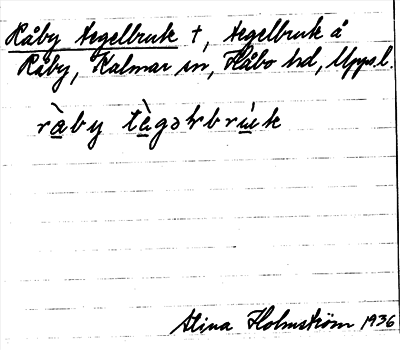 Råby Tegelbruk †, tegelbruk å
Råby, Kalmar sn, Håbo hd, Upps.l.
ràby tègəɫbrúk
Stina Holmström 1936